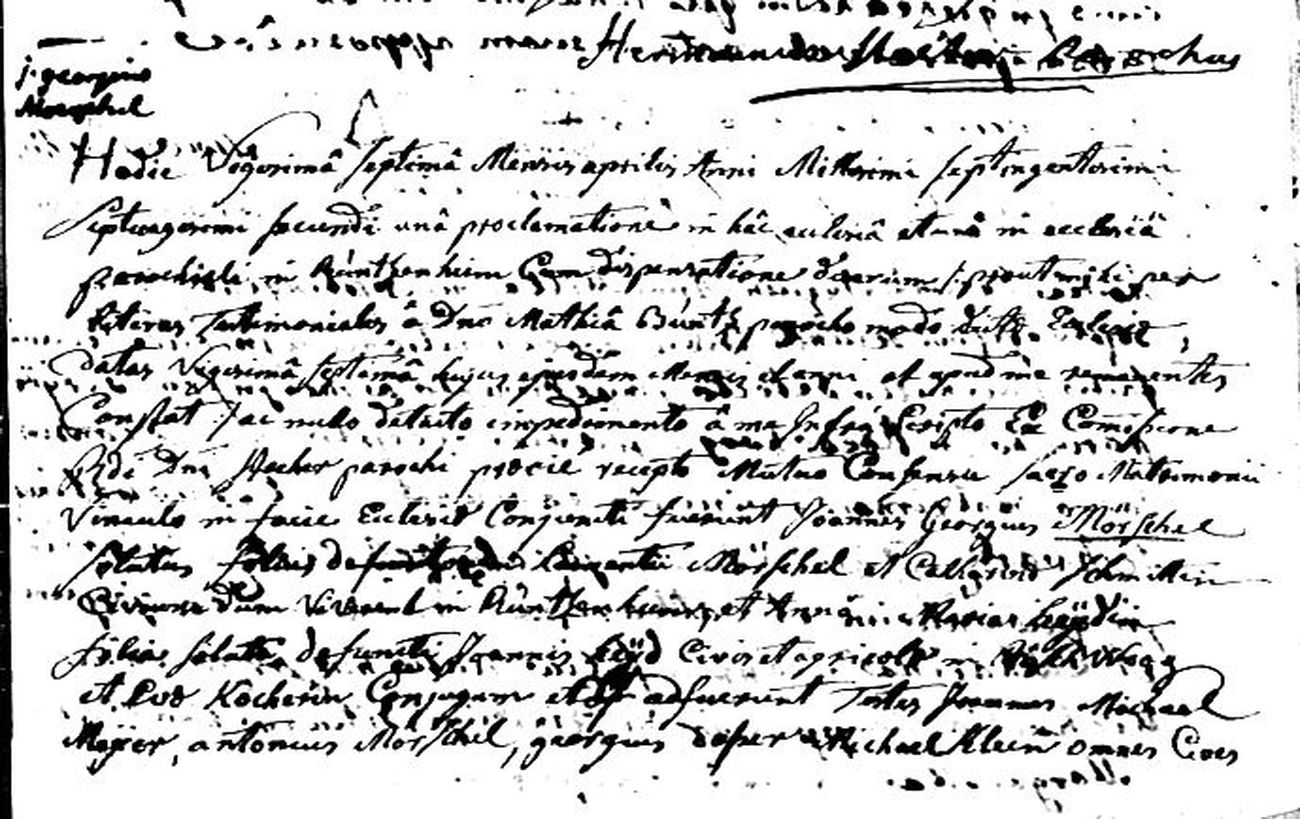 Parochus
j. georgius
Morschel
Hodie Vigesimâ Septimâ Mensis aprilis Anni Millesimi Septingentesimi
Septuagesimi secundi unâ proclamatione in hâc ecclesiâ et unâ in ecclesiâ
parochiali in Rüntzenheim Cum dispensatione duarum prout mihi per
litteras Testimoniales â Dno Mathiâ Büntz parocho modo dictæ Ecclesiæ,
datas Vigesimâ septimâ hujus ejusdem Mensis et anni et apud me remanentes
Constat, ac nullo detecto impedimento â me Infrâ Scripto Ex Comissione
Rdi Dni Stecher parochi recepto Mutuo Consensu sacro Matrimonii
Vinculo in facie Ecclesiæ Conjuncti fuerunt Joannes Georgius Mörschel
solutus filius defunctorum Mörschel et Catharinæ Schmittin
Civium dum Viverent in Rüntzenheim, et Anna Maria
filia soluta defuncti Joannis Civis et agricolæ in
et Evæ Kocherin Conjugum adfuerunt Testes Joannes Michael
Mejer, antonius Mörschel, georgius Michael Klein omnes Cives